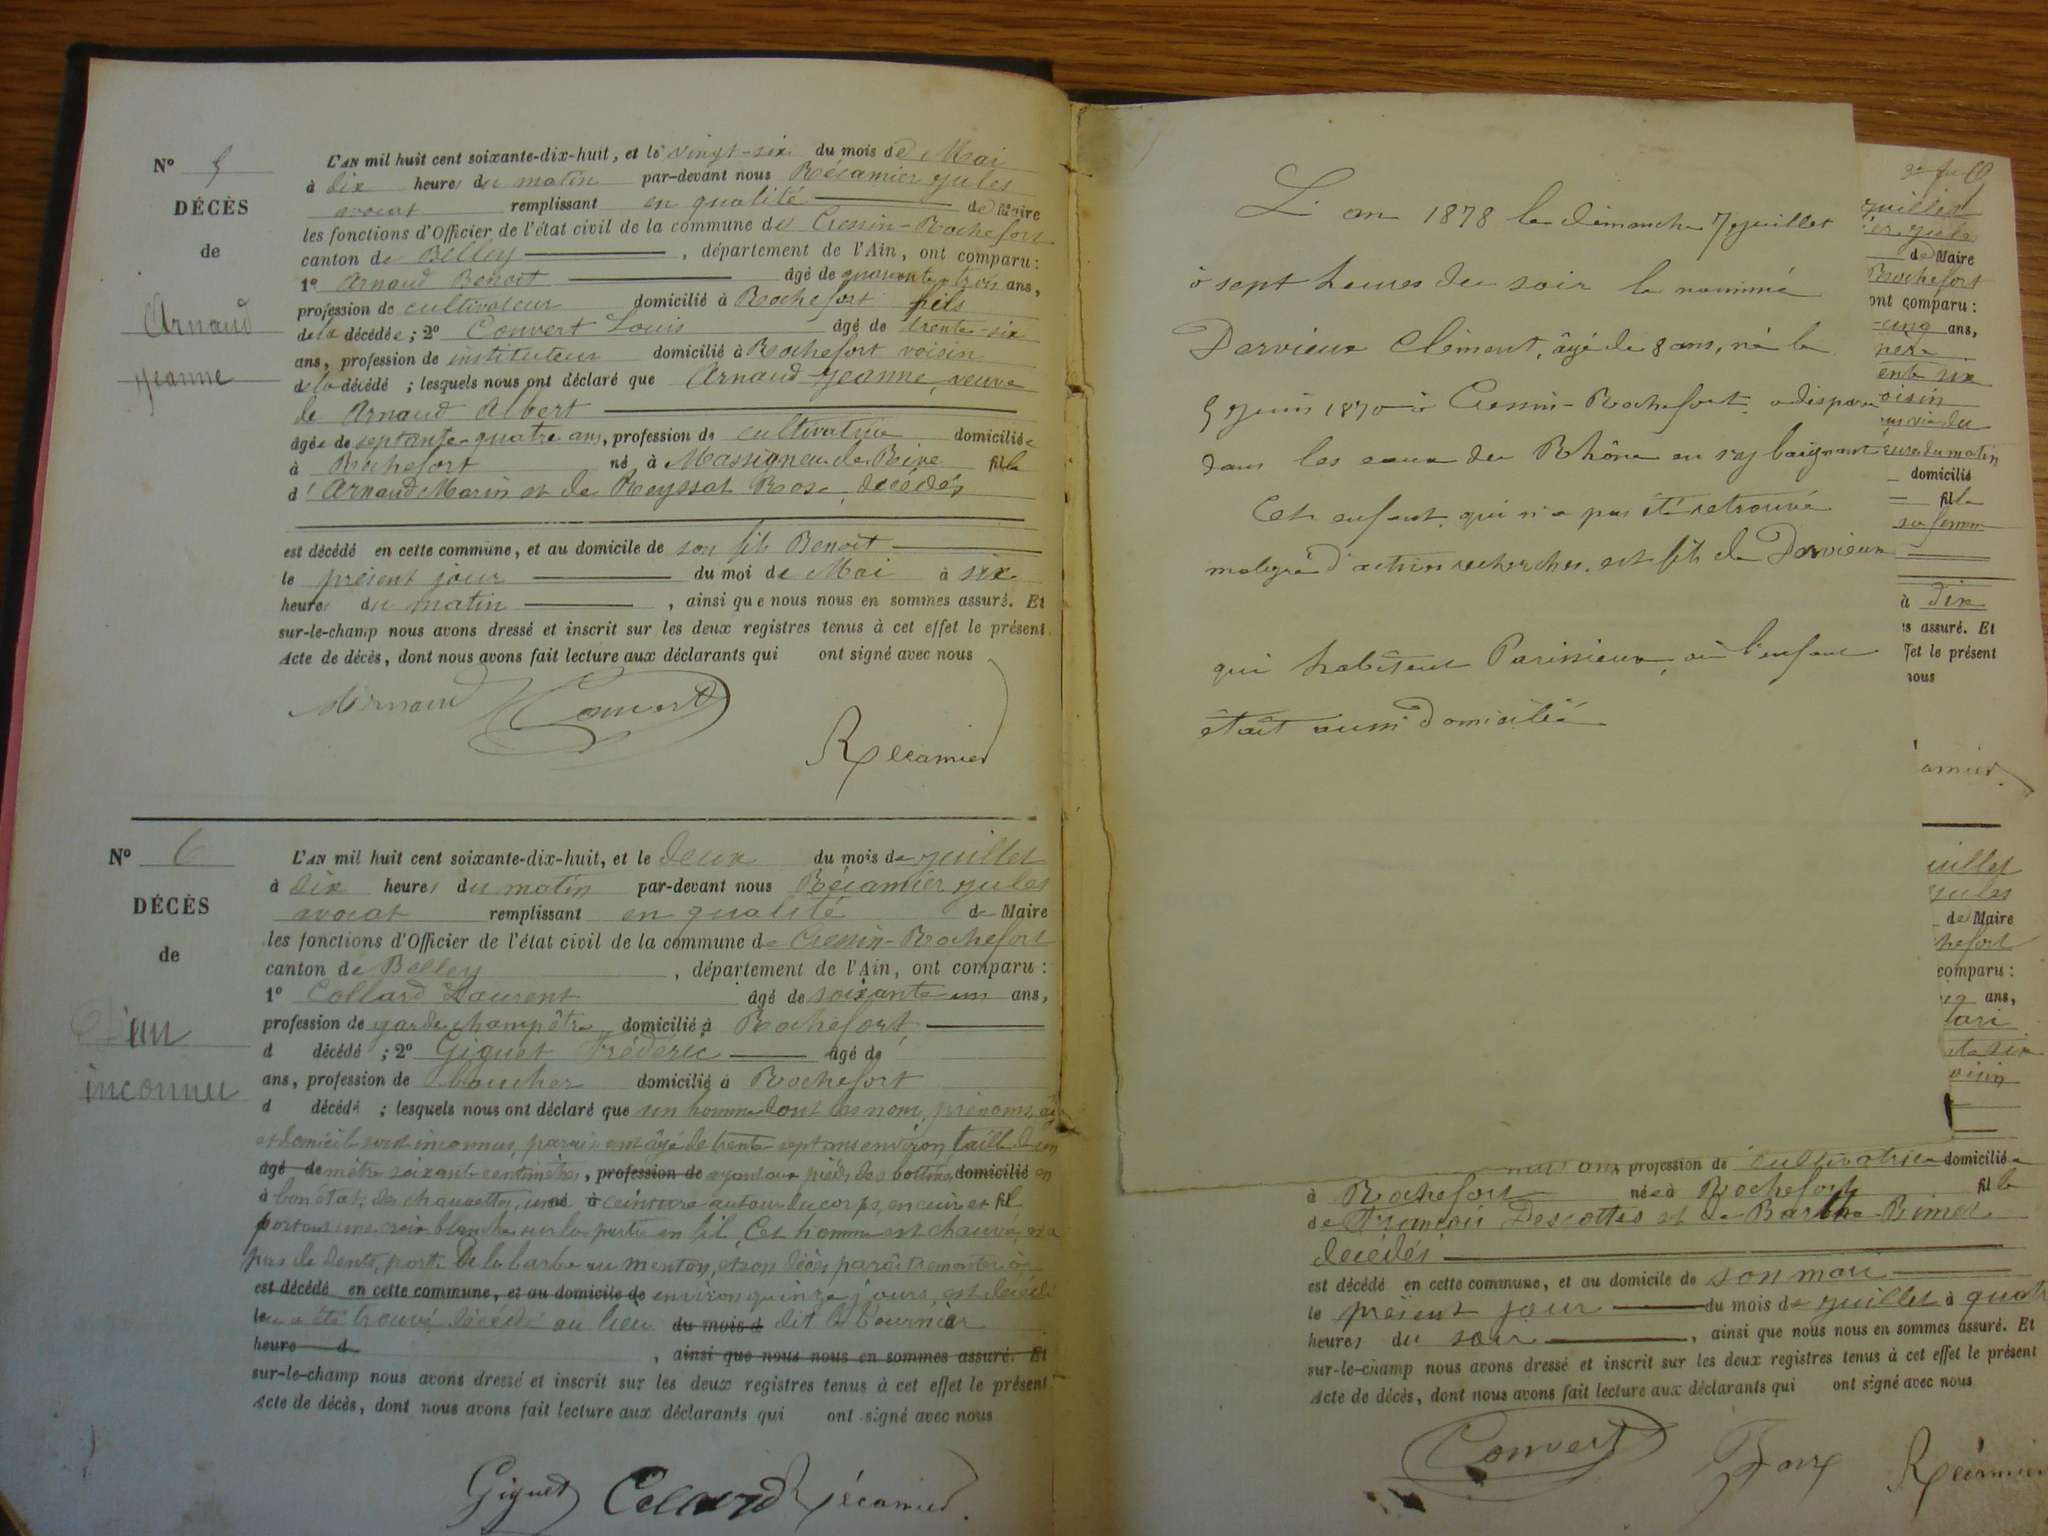 N° 5
DÉCÈS
de
Arnaud
Jeanne
L'AN mil huit cent soixante-dix-huit, et le vingt-six du mois de Mai
à dix heures du matin par-devant nous Récamier Jules
avocat remplissant en qualité de Maire
les fonctions d'Officier de l'état civil de la commune de Cressin-Rochefort
canton de Belley, département de l'Ain, ont comparu :
1° Arnaud Benoit âgé de quarante trois ans,
profession de cultivateur domicilié à Rochefort fils
de la décédée ; 2° Convert Louis âgé de trente-six
ans, profession de instituteur domicilié à Rochefort voisin
de la décédé ; lesquels nous ont déclaré que Arnaud Jeanne, veuve
de Arnaud Albert
âgée de septante quatre ans, profession de cultivatrice domiciliée
à Rochefort né à Massigneu de Rive fille
d'Arnaud Marin et de Reyssat Rose, décédés
est décédé en cette commune, et au domicile de son fils Benoît
le présent jour du moi de Mai à six
heures du matin, ainsi que nous nous en sommes assuré. Et
sur-le-champ nous avons dressé et inscrit sur les deux registres tenus à cet effet le présent
Acte de décès, dont nous avons fait lecture aux déclarants qui ont signé avec nous
Arnaud Convert
Récamier
N° 6
DÉCÈS
de
D'un
inconnu
L'AN mil huit cent soixante-dix-huit, et le deux du mois de juillet
à dix heures du matin par-devant nous Récamier Jules
avocat remplissant en qualité de Maire
les fonctions d'Officier de l'état civil de la commune de Cressin-Rochefort
canton de Belley, département de l'Ain, ont comparu :
1° Collard Laurent âgé de soixante un ans,
profession de garde champêtre domicilié à Rochefort
d décédé ; 2° Giguet Fréderic âgé de
ans, profession de boucher domicilié à Rochefort
d décédé ; lesquels nous ont déclaré que un homme dont les nom, prénoms, âge
et domicile sont inconnus, paraissant âgé de trente sept ans environ, taille d'un
âgé de mètre soixante centimètres, profession de ayant aux pieds des bottines domicilié en
à bon état, des chaussettes, une né à ceinture autour du corps, en cuir et fil
portant une croix blanche sur la partie en fil, Cet homme est chauve, n'a
pas de dents, porte de la barbe au menton, et son décès paraît remonter à
est décédé en cette commune, et au domicile de environ quinze jours, est décédé
le a été trouvé décédé au lieu du mois d dit le Tournier
heure d, ainsi que nous nous en sommes assuré. Et
sur-le-champ nous avons dressé et inscrit sur les deux registres tenus à cet effet le présent
Acte de décès, dont nous avons fait lecture aux déclarants qui ont signé avec nous
Giguet Colard Récamier
L'an 1878 le dimanche 7 juillet
à sept heures du soir le nommé
Dervieux Clément, âgé de 8 ans, né le
5 Juin 1870 à Cressin-Rochefort a disparu
dans les eaux du Rhône en s'y baignant
Cet enfant qui n'a pas été retrouvé
malgré d'actives recherches, est fils de Dervieux
qui habitent Parissieux, où l'enfant
était aussi domicilié
de Maire
Rochefort
ont comparu :
cinq ans,
père
voisin
heures du matin
domicilié
fille
sa femme
à dix
s assuré. Et
et le présent
nous
amier
uillet
Jules
de Maire
hefort
comparu :
ans,
voisin
ans, profession de cultivatrice domiciliée
à Rochefort née à Rochefort fille
de François Descottes et de Barthe Bimet
décédés
est décédé en cette commune, et au domicile de son mari
le présent jour du mois de juillet à quatre
heures du soir, ainsi que nous nous en sommes assuré. Et
sur-le-champ nous avons dressé et inscrit sur les deux registres tenus à cet effet le présent
Acte de décès, dont nous avons fait lecture aux déclarants qui ont signé avec nous
Convert Récamier